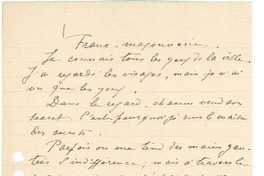 Franc-maçonnerie.
Je connais tous les yeux de la ville.
J'ai regardé les visages, mais je n'ai
vu que les yeux.
Dans le regard, chacun vend son
secret. C'est pourquoi je suis le maître
des secrets.
Parfois on me tend des mains gan-
tées d'indifférence; mais à travers le